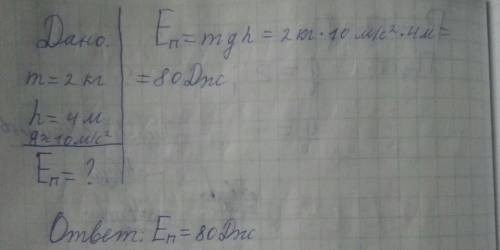 Дано.
m = 2 кг
h = 4 м
g ≈ 10 м/с²
Eп = ?
Eп = mgh = 2 кг · 10 м/с² · 4м =
= 80 Дж
Ответ: Eп = 80 Дж